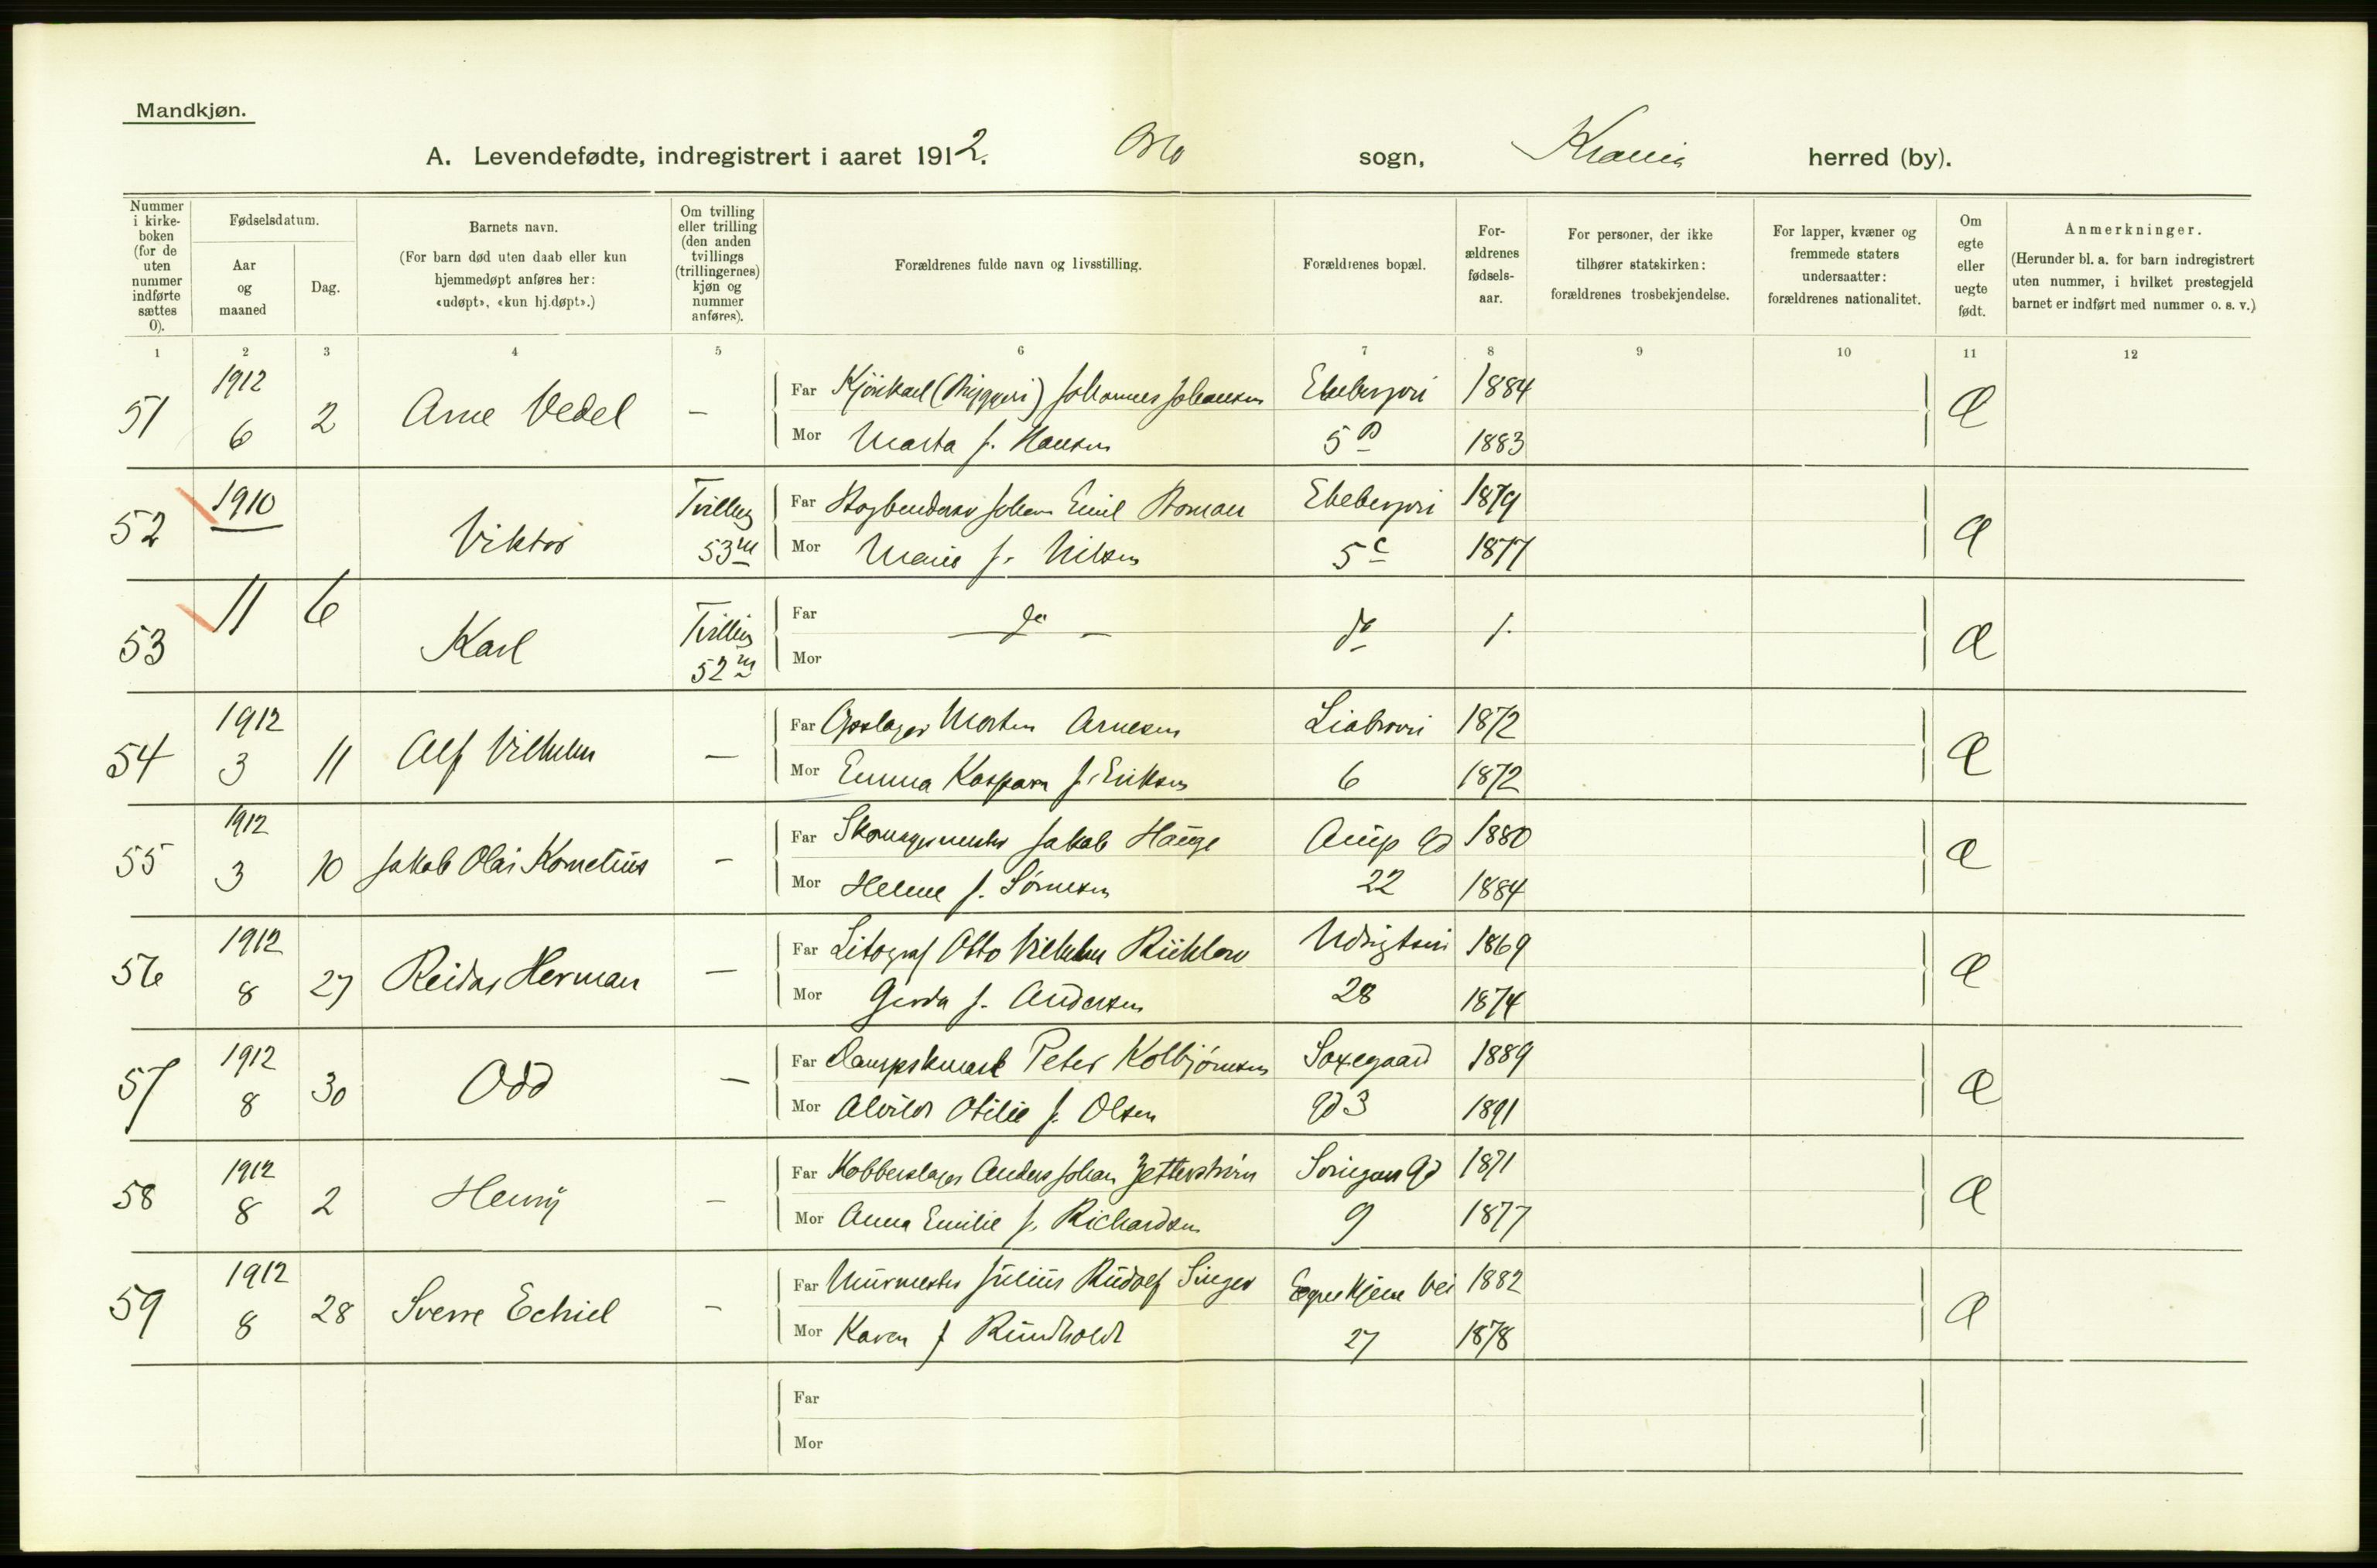 Mandkjøn.
A. Levendefødte, indregistrert i aaret 1912. Oslo sogn, Krania herred (by).
Nummer i kirke-boken (for de uten nummer indførte sættes 0).
Fødselsdatum.
Aar og maaned
Dag.
Barnets navn.
(For barn død uten daab eller kun hjemmedøpt anføres her: «udøpt», «kun hj.døpt».)
Om tvilling eller trilling (den anden tvillings (trillingernes) kjøn og nummer anføres).
Forældrenes fulde navn og livsstilling.
Forældrenes bopæl.
For-ældrenes fødsels-aar.
For personer, der ikke tilhører statskirken: forældrenes trosbekjendelse.
For lapper, kvæner og fremmede staters undersaatter: forældrenes nationalitet.
Om egte eller uegte født.
Anmerkninger.
(Herunder bl. a. for barn indregistrert uten nummer, i hvilket prestegjeld barnet er indført med nummer o. s. v.)
1 2 3 4 5 6 7 8 9 10 11 12
51 1912 6 2 Arne Vedel —
Far Kjørekarl (Bryggeri) Johannes Johansen Ekebergvei 1884 Æ
Mor Marta f. Hansen 5 B 1883
52 1910 Viktor Tvilling 53 m
Far Johan Emil Roman Ekebergvei 1879 Æ
Mor Marie f. Nilsen 5 c 1877
11 6
53 Karl Tvilling 52 m
Far do do Æ
Mor
54 1912 3 11 Alf Vilhelm —
Far Opslager Morten Arnesen Liabrovei 1872 Æ
Mor Emma Kaspara f. Eriksen 6 1872
55 1912 3 10 Jakob Olai Kornelius —
Far Skomagermester Jakob Hauge Amp Gd 1880 Æ
Mor Helene f. Sørnesen 22 1884
56 1912 8 27 Reidar Herman —
Far Litograf Otto Vilhelm Rükler Udsigtsvei 1869 Æ
Mor Gerda f. Andersen 28 1874
57 1912 8 30 Odd —
Far Peter Kolbjørnsen Saxegaard 1889 Æ
Mor Alvilde Otilie f. Olsen Gd 3 1891
58 1912 8 2 Henry —
Far Kobberslager Anders Johan Zetterström Sørengen Gd 1871 Æ
Mor Anna Emilie f. Richardsen 9 1877
59 1912 8 28 Sverre Echiel —
Far Murmester Julius Rudolf Singer Egnehjem vei 1882 Æ
Mor Karen f Rundholdt 27 1878
Far
Mor